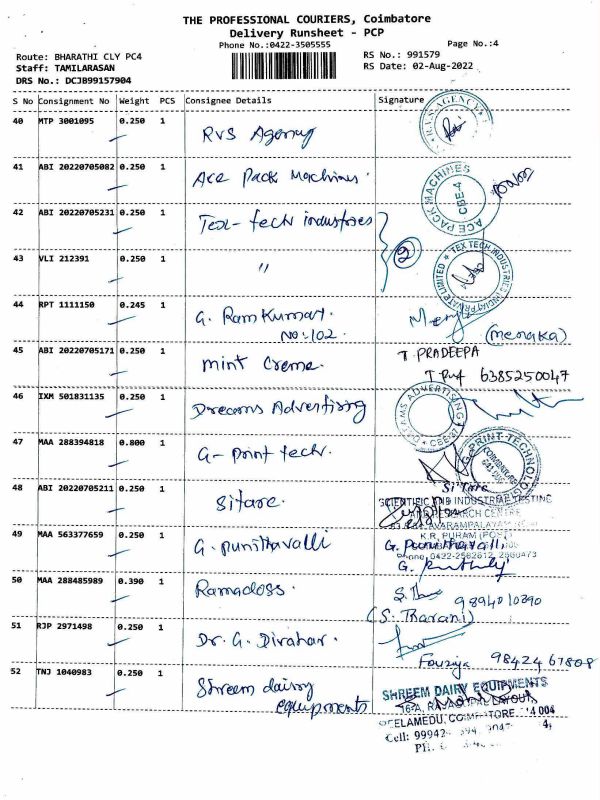 THE PROFESSIONAL COURIERS, Coimbatore
Delivery Runsheet - PCP
Phone No.:0422-3505555
Page No.:4
Route: BHARATHI CLY PC4
RS No.: 991579
Staff: TAMILARASAN
RS Date: 02-Aug-2022
DRS No.: DCJB99157904
S No Consignment No Weight PCS Consignee Details Signature
40 MTP 3001095 0.250 1 RVS Agency
R.V.S AGENCY
41 ABI 20220705082 0.250 1 Ace Pack Machines.
ACE PACK MACHINES CBE-4
42 ABI 20220705231 0.250 1 Tex-tech industries
2
43 VLI 212391 0.250 1 "
TEX TECH INDUSTRIES (INDIA) PRIVATE LIMITED
44 RPT 1111150 0.245 1 G. Ram Kumar.
No: 102.
(menaka)
45 ABI 20220705171 0.250 1 mint Creme.
T PRADEEPA
6385250047
46 IXM 501831135 0.250 1 Dreams Advertising
DREAMS ADVERTISING
47 MAA 288394818 0.800 1 G-Print tech.
G-PRINT-TECHNOLOGY
COIMBATORE
48 ABI 20220705211 0.250 1 Sitare.
Si'Tare
SCIENTIFIC AND INDUSTRIAL TESTING
AND RESEARCH CENTRE
AVARAMPALAYAM
K.R. PURAM (POST)
49 MAA 563377659 0.250 1 G. Punithavalli
G. Punithavalli,
Phone 0422-2562612, 2560473
50 MAA 288485989 0.390 1 Ramadoss.
(S. Tharani)
51 RJP 2971498 0.250 1 Dr. G. Divahar.
Fouziya 9842467808
52 TNJ 1040983 0.250 1 Shreem dairy
equipments
SHREEM DAIRY EQUIPMENTS
16-A, RAJAGOPAL LAYOUT,
PEELAMEDU, COIMBATORE
Cell: 99942